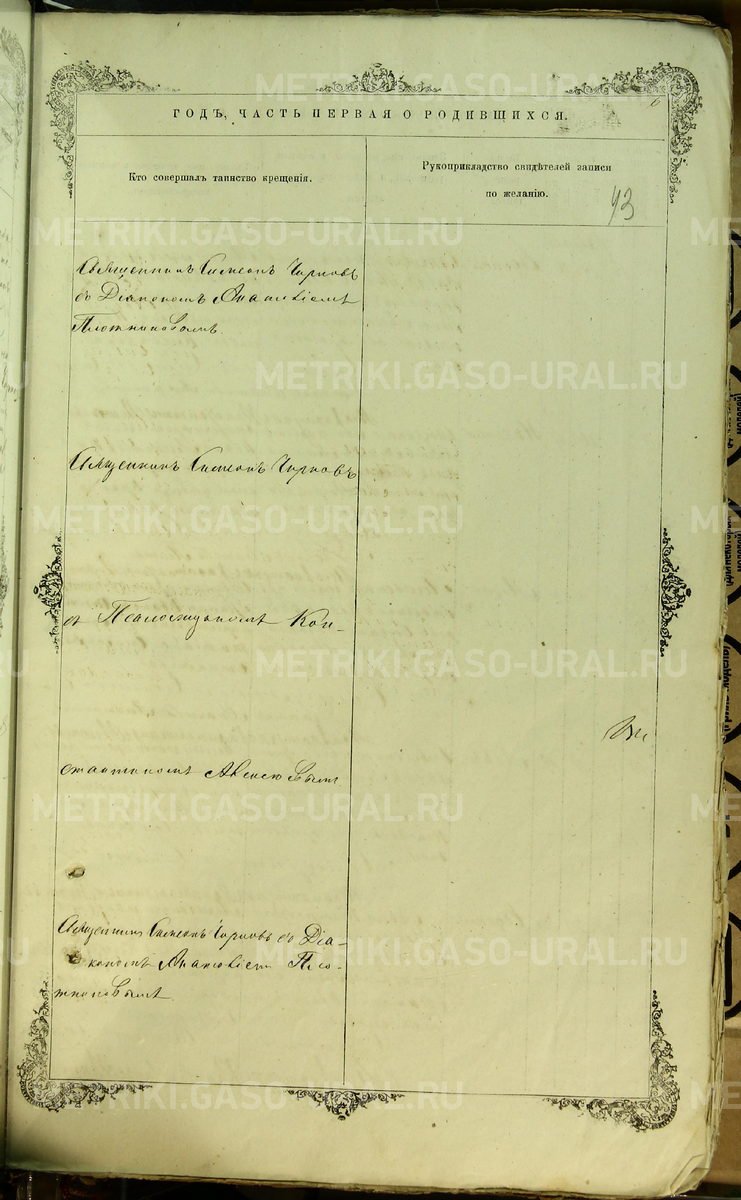 ГОДЪ, ЧАСТЬ ПЕРВАЯ О РОДИВШИХСЯ.
6
Кто совершалъ таинство крещенія.
Рукоприкладство свидѣтелей записи
по желанію.
93
Священникъ Симеонъ Чирковъ
со Діакономъ
Плотниковымъ.
Священникъ Симеонъ Чирковъ
съ Псаломщикомъ Кон-
стантиномъ
Священникъ Симеонъ Чирковъ со Діа-
кономъ Пло-
тниковымъ.
METRIKI.GASO-URAL.RU